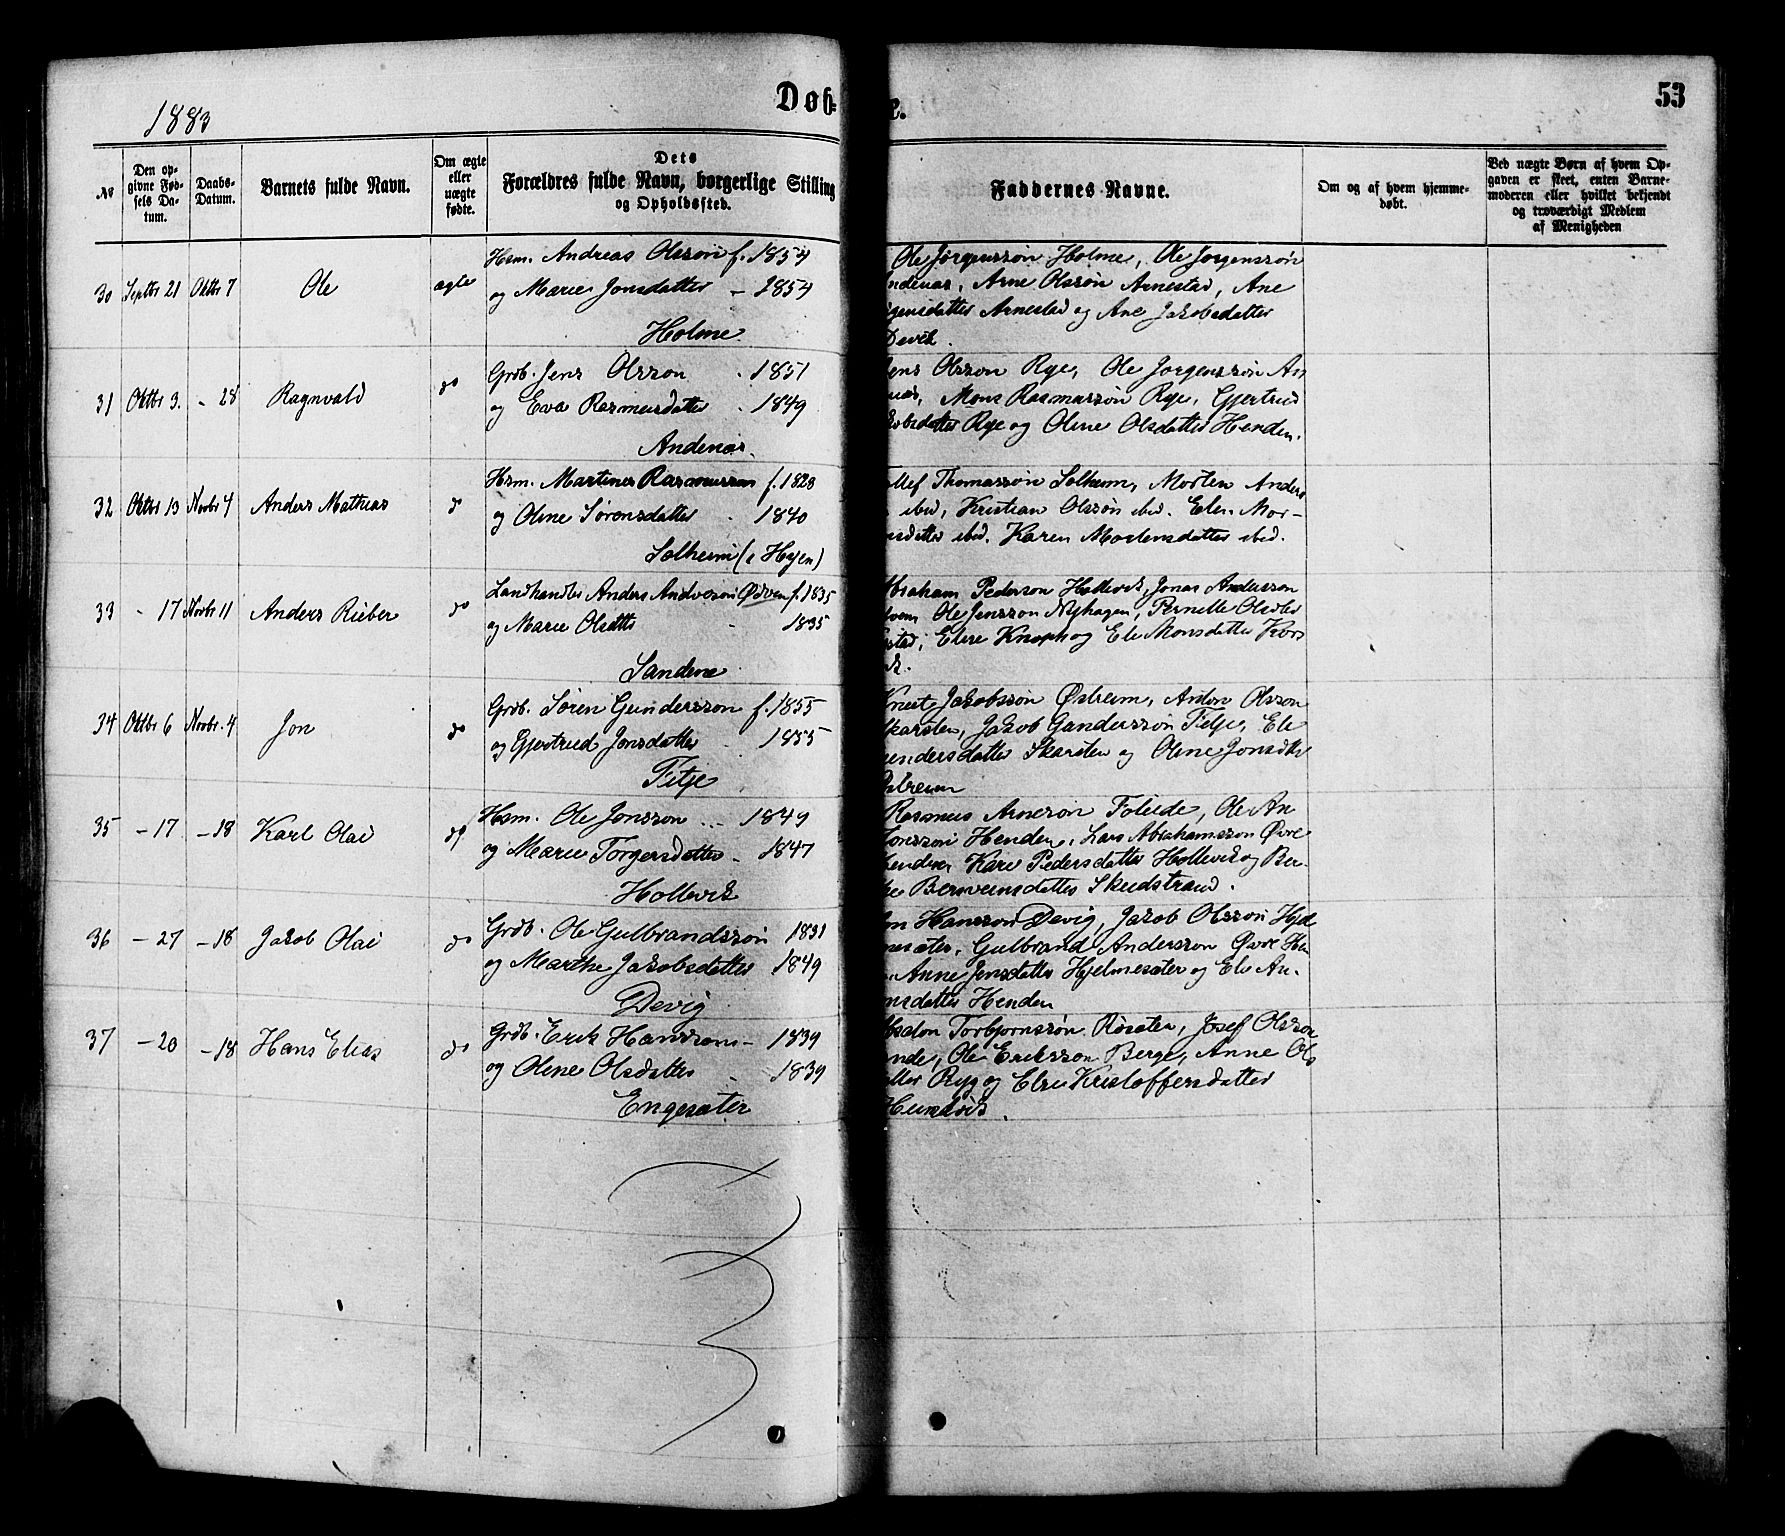 1883
Døb=
e.
53
No
Den op-
givne Fød-
sels Da-
tum.
Daabs-
Datum.
Barnets fulde Navn.
Om ægte
eller
uægte
fødte.
Dets
Forældres fulde Navn, borgerlige Stilling
og Opholdssted.
Faddernes Navne.
Om og af hvem hjemme-
døbt.
Ved uægte Børn af hvem Op-
gaven er skeet, enten Barne-
moderen eller hvilket bekjendt
og troværdigt Medlem
af Menigheden
30 Septbr 21 Oktbr 7 Ole ægte
Hsm. Andreas Olsson f. 1854
og Marie Jonsdatter - 1854
Holme
Ole Jørgenssøn Holme, Ole Jørgenssøn
ndenæs, Arne Olssøn Arnestad, Ane
gensdatter Arnestad og Ane Jakobsdatter
Devik.
31 Oktbr 3. - 28 Ragnvald do
Grdb. Jens Olsson - 1851
og Eva Rasmusdatter - 1849
Andenæs.
ens Olsson Rye, Ole Jørgenssøn An
næs, Mons Rasmussøn Rye, Gjertrud
kobsdatter Rye og Oline Olsdatter Henden.
32 Oktbr 13 Novbr 4 Anders Mathias do
Hsm. Martinus Rasmussøn f. 1828
og Oline Sørensdatter - 1840
Solheim (i Hyen)
llef Thomassøn Solheim, Morten Anders
ibid, Kristian Olssøn ibid. Elen Mor-
nsdatter ibid. Karen Mortensdatter ibid.
33 - 17 Novbr 11 Anders Rieber do
Landhandler Anders Anderson Ødven f. 1835
og Marie Olsdttr - 1835
Sandene
Abraham Pederson Hollevik, Jonas Andersson
Ole Jensson Nyhagen, Pernille Olsdtr
stad, Elise Knoph og Ele Monsdatter Kors
k.
34 Oktbr 6 Novbr. 4 Jon do
Grdb. Søren Gundersson f. 1855
og Gjertrud Jonsdatter - 1855
Fitje
Knut Jakobssøn Østrem, Anton Olsson
Skarsten, Jakob Gunderssøn Fitje, Ele
undersdatter Skarsten og Oline Jonsdtr
Østrem
35 - 17 - 18 Karl Olai do
Hsm. Ole Jonsson - 1849
og Marie Torgersdatter - 1847
Hollevik
Rasmus Arnesøn Foleide, Ole An
Jonssøn Henden, Lars Abrahamsson Øvre
Henden, Kari Pedersdatter Hollevik og Ber-
Skudstrand.
36 - 27 - 18 Jakob Olai do
Grdb. Ole Gulbrandssøn 1831
og Marthe Jakobsdatter 1849
Devig
on Hansson Devig, Jakob Olssøn Hjel
mesæter, Gulbrand Anderssøn Øvre Hen
Anne Jensdatter Hjelmesæter og Ele An-
nsdatter Henden
37 - 20 - 18 Hans Elias do
Grdb. Erik Hanssøn - 1839
og Oline Olsdatter - 1839
Engesæter
Absalon Torbjørnssøn Røsæter, Josef Olsson
nde, Ole Eriksson Berge, Anne Ols
atter Ryg og Elise Kristoffersdatter
Hundvik.